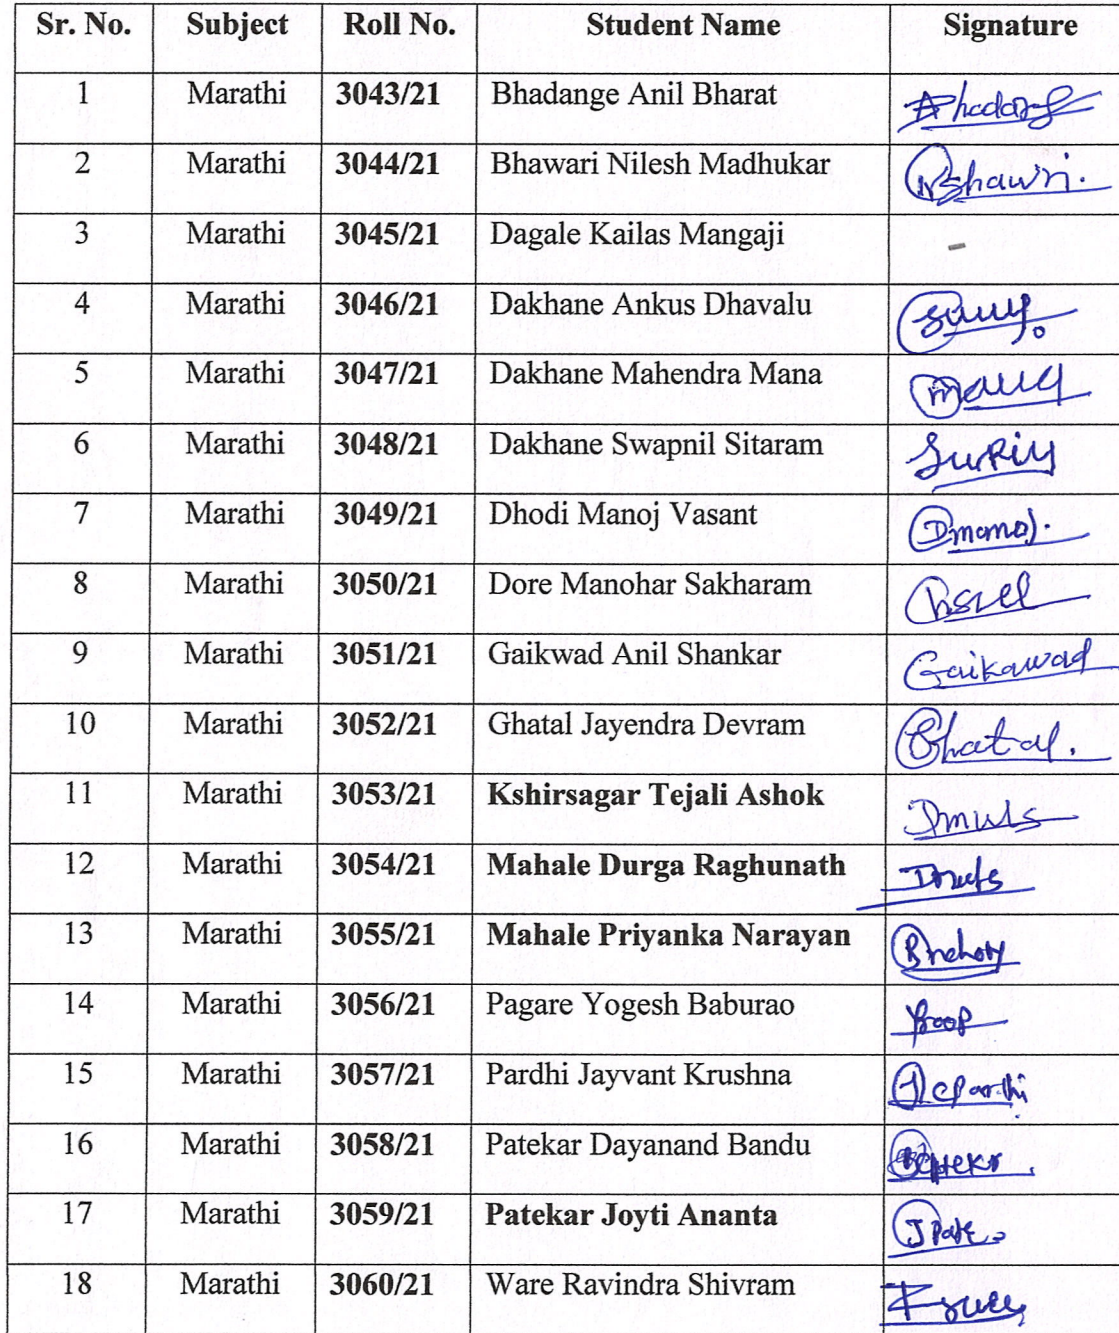 Sr. No. Subject Roll No. Student Name Signature
1 Marathi 3043/21 Bhadange Anil Bharat
2 Marathi 3044/21 Bhawari Nilesh Madhukar
3 Marathi 3045/21 Dagale Kailas Mangaji -
4 Marathi 3046/21 Dakhane Ankus Dhavalu
5 Marathi 3047/21 Dakhane Mahendra Mana
6 Marathi 3048/21 Dakhane Swapnil Sitaram
7 Marathi 3049/21 Dhodi Manoj Vasant
8 Marathi 3050/21 Dore Manohar Sakharam
9 Marathi 3051/21 Gaikwad Anil Shankar Gaikawad
10 Marathi 3052/21 Ghatal Jayendra Devram Ghatal.
11 Marathi 3053/21 Kshirsagar Tejali Ashok
12 Marathi 3054/21 Mahale Durga Raghunath
13 Marathi 3055/21 Mahale Priyanka Narayan
14 Marathi 3056/21 Pagare Yogesh Baburao
15 Marathi 3057/21 Pardhi Jayvant Krushna
16 Marathi 3058/21 Patekar Dayanand Bandu
17 Marathi 3059/21 Patekar Joyti Ananta
18 Marathi 3060/21 Ware Ravindra Shivram